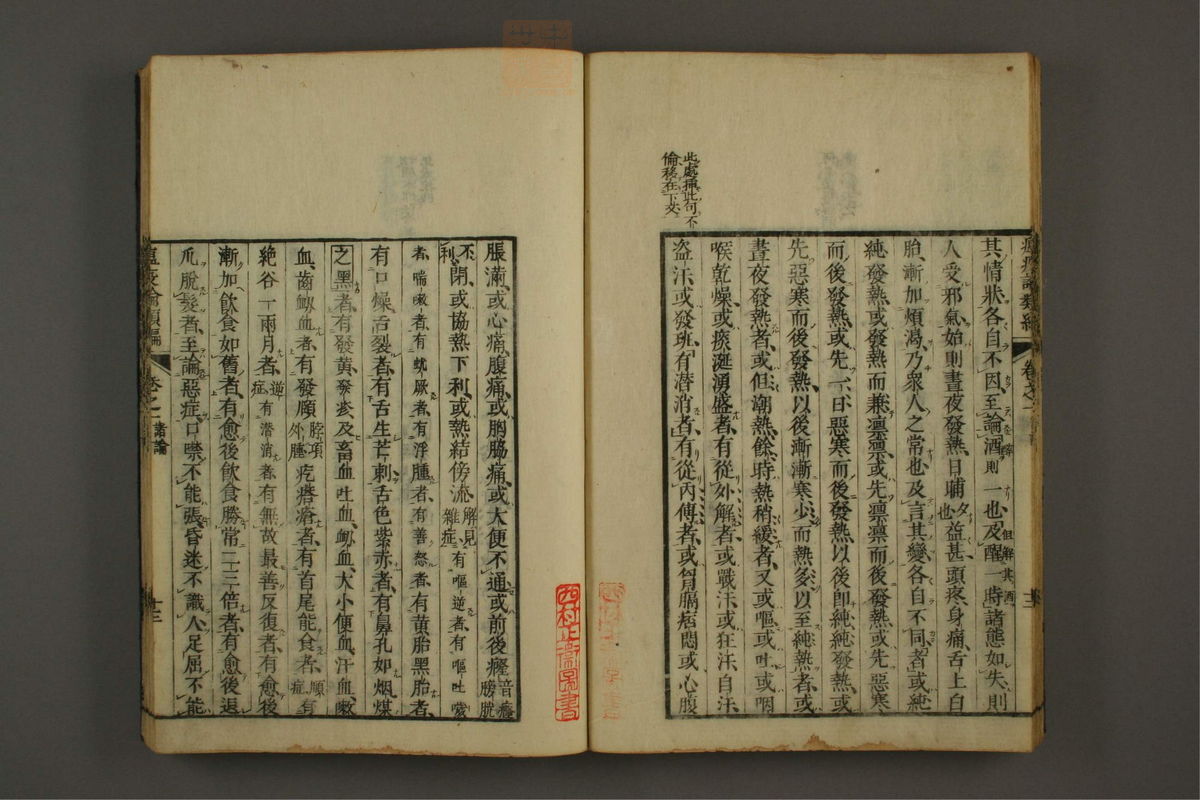 此處揷此句不
倫移在下文
其情狀各自不因至論酒則一也及醒一時諸態如失則
但解其酒
人受邪氣始則晝夜發熱日晡夕也益甚頭疼身痛舌上白
胎漸加煩渴乃衆人之常也及言其變各自不同者或純
純發熱或發熱而兼凛凛或先凛凛而後發熱或先惡寒
而後發熱或先一日惡寒而後發熱以後即純純發熱或
先惡寒而後發熱以後漸漸寒少而熱多以至純熱者或
晝夜發熱者或但潮熱餘時熱稍緩者又或嘔或吐或咽
喉乾燥或痰涎湧盛者有從外解者或戰汗或狂汗自汗
盗汗或發斑有潜消者有從内傳者或胷膈痞悶或心腹
脹滿或心痛腹痛或胸脇痛或大便不通或前後癃音癃膀胱
不利閉或協熱下利或熱結傍流解見雜症有嘔逆者有嘔吐噦
者喘嗽者有蚘厥者有浮腫者有善怒者有黄胎黑胎者
有口燥舌裂者有舌生芒刺舌色紫赤者有鼻孔如烟煤
之黑者有發黄發疹及畜血吐血衂血大小便血汗血嗽
血齒衂血者有發頥脖項外腫疙瘩瘡者有首尾能食者順症有
絶谷一兩月者逆症有潜消者有無故最善反復者有愈後
漸加飲食如舊者有愈後飲食勝常二三倍者有愈後退
爪脱髮者至論惡症口噤不能張昏迷不識人足屈不能
卷之一
諸論
十三